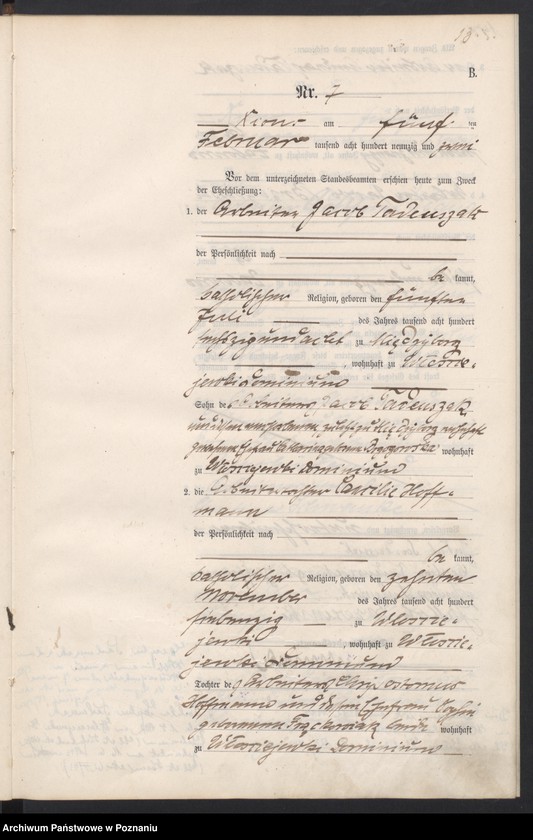 B.
Nr. 7
Xions am fünf ten
Februar tausend acht hundert neunzig und zwei
Vor dem unterzeichneten Standesbeamten erschien heute zum Zweck
der Eheschließung:
1. der Arbeiter Jacob Tadeuszak
der Persönlichkeit nach
be kannt,
katholischer Religion, geboren den fünften
Juli des Jahres tausend acht hundert
sechszig und acht zu
, wohnhaft zu Wloscie-
jewki Dominium
Sohn des Arbeiters Jacob Tadeuszak
und
geborenen wohnhaft
zu Wlosciejewki Dominium
2. die Arbeitertochter Cäcilie Hoff-
mann
der Persönlichkeit nach
be kannt,
katholischer Religion, geboren den zehnten
November des Jahres tausend acht hundert
siebenzig zu Wloscie-
jewki , wohnhaft zu Wloscie-
jewki Dominium
Tochter des Arbeiters
Hoffmann und dessen Ehefrau Sophie
geborenen Frąckowiak beide wohnhaft
zu Wlosciejewki Dominium
Archiwum Państwowe w Poznaniu